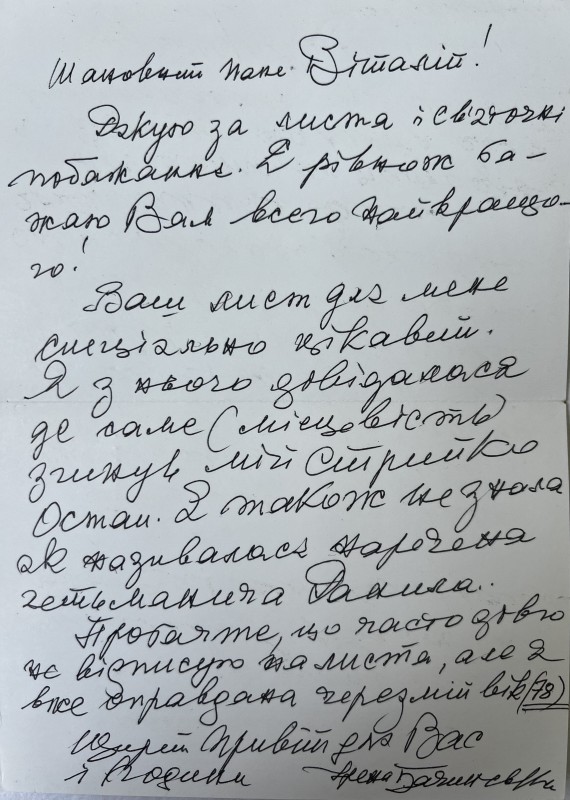 Шановний пане Віталій!
Дякую за листа і святочні
побажання. Я рівнож ба-
жаю Вам всего найкращо-
го!
Ваш лист для мене
спеціально цікавий.
Я з нього довідалася
де саме (місцевість)
згинув мій Стрийко
Остап. Я також не знала
як називалась наречена
гетьманича Данила.
Пробачте, що часто довго
не відписую на листа, але я
вже оправдана через мій вік (78)
Щирий Привіт для Вас
і Родини Ірена Бачинська